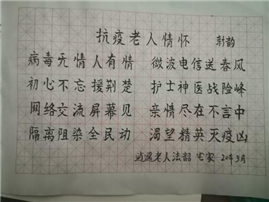 抗疫老人情怀 新韵
病毒无情人有情 微波电信送春风
初心不忘援荆楚 护士神医战险峰
网络交流屏幕见 亲情尽在不言中
隔离阻染全民动 渴望精英灭疫凶
逍遥老人法韶 宅家 20年3月